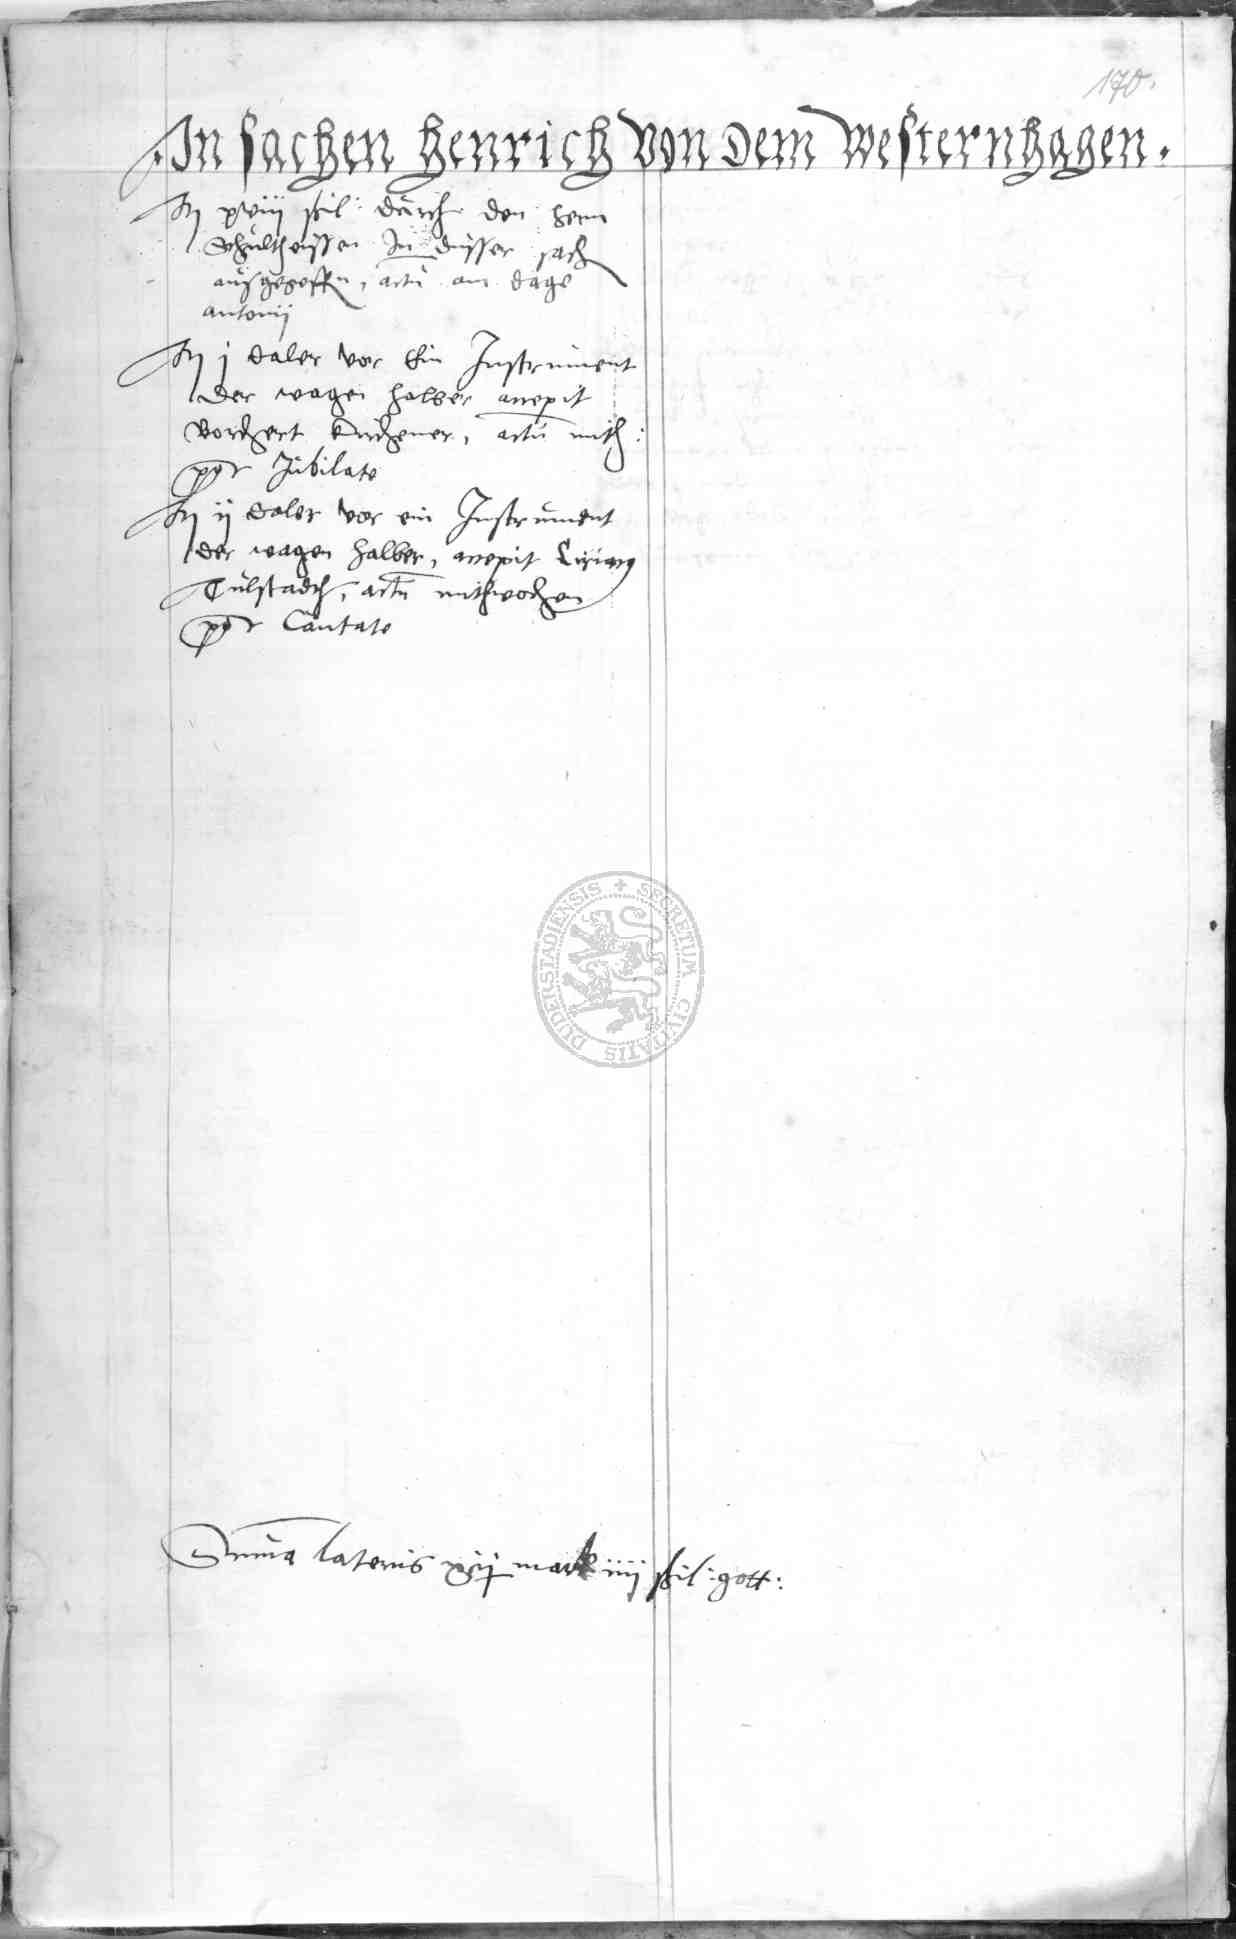 170.
In sachen Henrich von dem Westernhagen.
It xviii ßil: durch den hern
Schultheissen In dusser sach
ausgegeffen, actu am dage
antonij
It j daler vor Ein Instrument
der wagen halber accepit
Borchert Kirchener, actu mith:
post Jubilate
It ij daler vor ein Instrument
der wagen halber, accepit Ciriacus
Tulstadth, actu mithwochen
post Cantate
Suma lateris mark iiij ßil: gott:
SECRETUM CIVITATIS DUDERSTADIENSIS